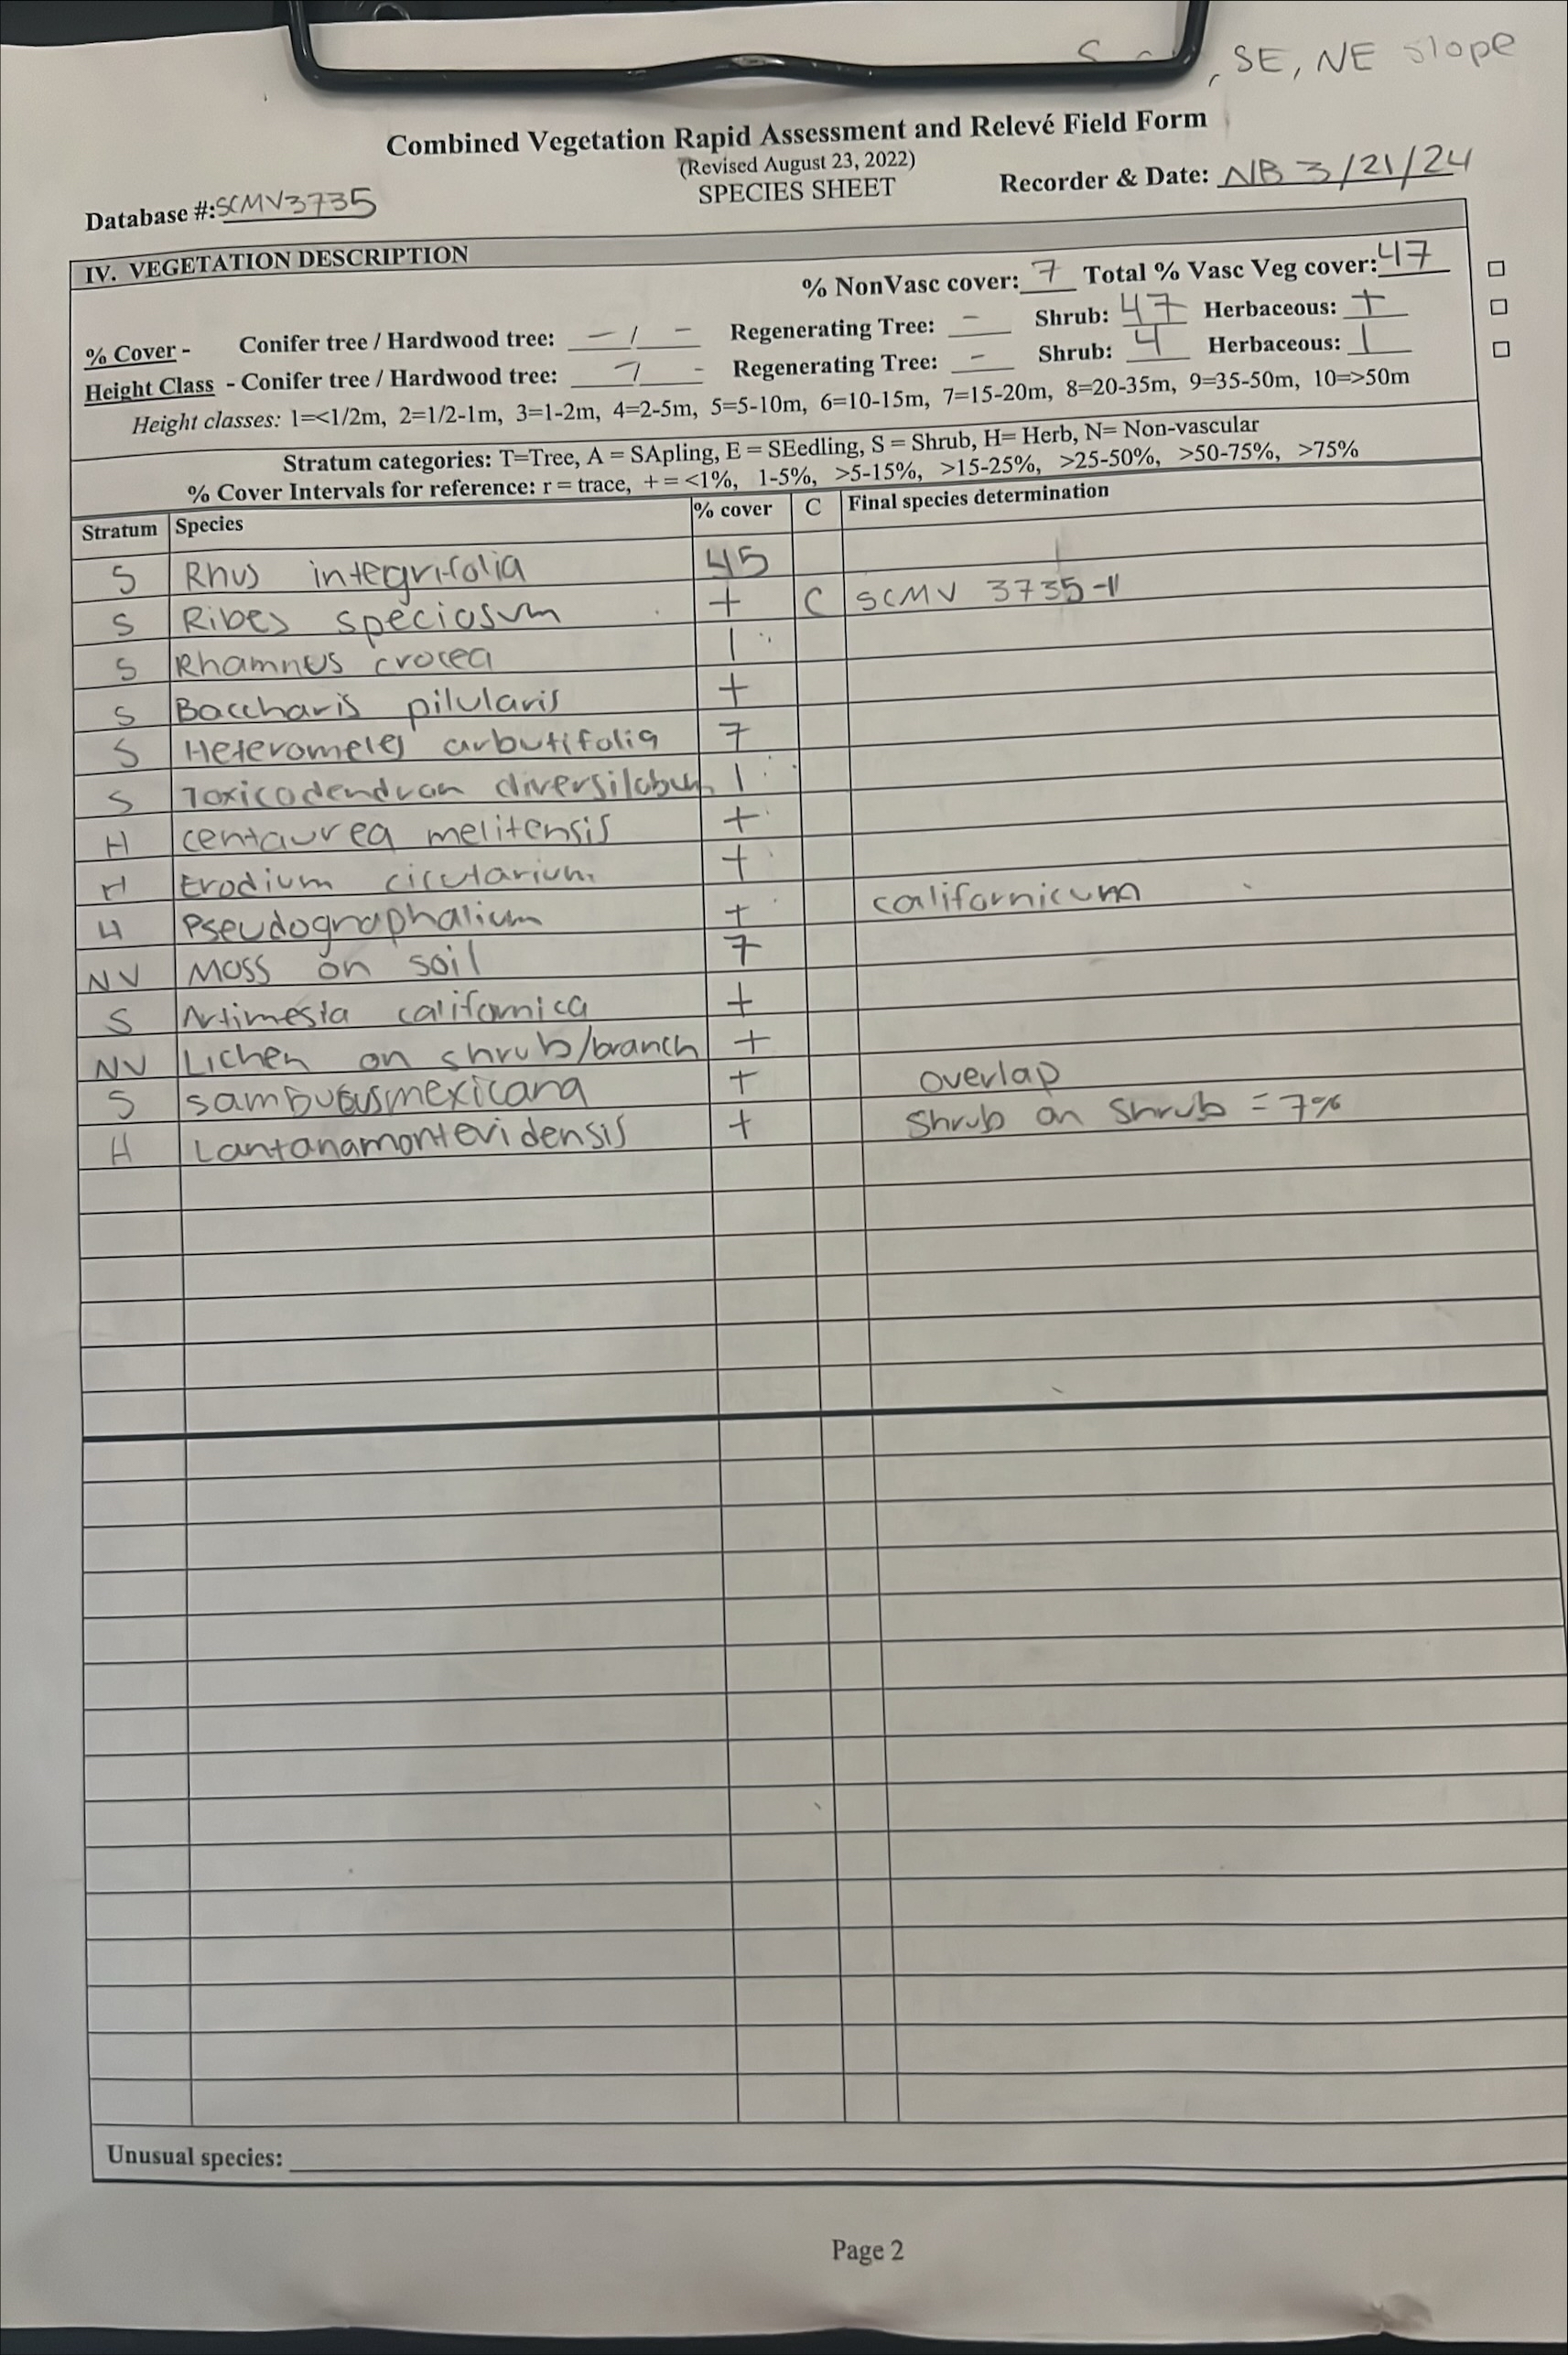 , SE, NE slope
Combined Vegetation Rapid Assessment and Relevé Field Form
(Revised August 23, 2022)
SPECIES SHEET
Database #: SCMV3735
Recorder & Date: NB 3/21/24
IV. VEGETATION DESCRIPTION
% NonVasc cover: 7 Total % Vasc Veg cover: 47
% Cover - Conifer tree / Hardwood tree: - / - Regenerating Tree: - Shrub: 47 Herbaceous: +
Height Class - Conifer tree / Hardwood tree: -/ - Regenerating Tree: - Shrub: 4 Herbaceous: 1
Height classes: 1=<1/2m, 2=1/2-1m, 3=1-2m, 4=2-5m, 5=5-10m, 6=10-15m, 7=15-20m, 8=20-35m, 9=35-50m, 10=>50m
Stratum categories: T=Tree, A = SApling, E = SEedling, S = Shrub, H= Herb, N= Non-vascular
% Cover Intervals for reference: r = trace, + = <1%, 1-5%, >5-15%, >15-25%, >25-50%, >50-75%, >75%
Stratum Species % cover C Final species determination
S Rhus integrifolia 45
S Ribes speciosum + C SCMV 3735-11
S Rhamnus crocea 1
S Baccharis pilularis +
S Heteromeles arbutifolia 7
S Toxicodendron diversilobum 1
H centaurea melitensis +
H Erodium cicutarium +
H Pseudognaphalium + californicum
NV Moss on soil 7
S Artimesia californica +
NV Lichen on shrub/branch +
S sambucusmexicana + overlap
H Lantanamontevidensis + Shrub on shrub = 7%
Unusual species:
Page 2